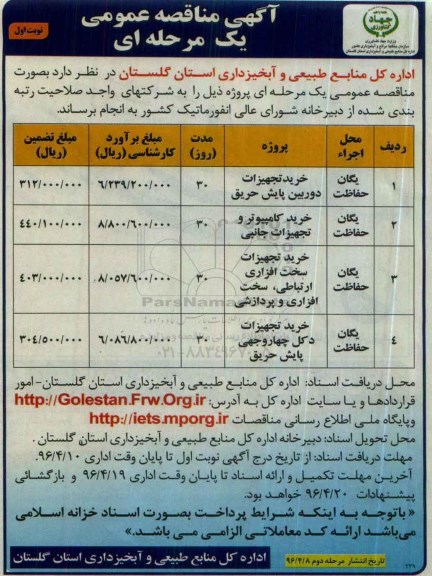 آگهی مناقصه عمومی
یک مرحله ای
نوبت اول
جهاد
اداره کل منابع طبیعی و آبخیزداری استان گلستان در نظر دارد بصورت
مناقصه عمومی یک مرحله ای پروژه ذیل را به شرکتهای واجد صلاحیت رتبه
بندی شده از دبیرخانه شورای عالی انفورماتیک کشور به انجام برساند.
ردیف محل اجراء پروژه مدت (روز) مبلغ برآورد کارشناسی (ریال) مبلغ تضمین (ریال)
۱ یگان حفاظت خرید تجهیزات دوربین پایش حریق ۳۰ ۶/۲۳۹/۲۰۰/۰۰۰ ۳۱۲/۰۰۰/۰۰۰
۲ یگان حفاظت خرید کامپیوتر و تجهیزات جانبی ۳۰ ۸/۸۰۰/۶۰۰/۰۰۰ ۴۴۰/۱۰۰/۰۰۰
۳ یگان حفاظت خرید تجهیزات سخت افزاری ارتباطی، سخت افزاری و پردازشی ۳۰ ۸/۰۵۷/۶۰۰/۰۰۰ ۴۰۳/۰۰۰/۰۰۰
۴ یگان حفاظت خرید تجهیزات دکل چهاروجهی پایش حریق ۳۰ ۶/۰۸۶/۸۰۰/۰۰۰ ۳۰۴/۵۰۰/۰۰۰
محل دریافت اسناد: اداره کل منابع طبیعی و آبخیزداری استان گلستان-امور
قراردادها و یا سایت اداره کل به آدرس: http://Golestan.Frw.Org.ir
وپایگاه ملی اطلاع رسانی مناقصات http://iets.mporg.ir
محل تحویل اسناد: دبیرخانه اداره کل منابع طبیعی و آبخیزداری استان گلستان .
مهلت دریافت اسناد: از تاریخ درج آگهی نوبت اول تا پایان وقت اداری ۹۶/۴/۱۰.
آخرین مهلت تکمیل و ارائه اسناد تا پایان وقت اداری ۹۶/۴/۱۹ و بازگشائی
پیشنهادات ۹۶/۴/۲۰ خواهد بود.
« باتوجه به اینکه شرایط پرداخت بصورت اسناد خزانه اسلامی
می‌باشد ارائه کد معاملاتی الزامی می باشد.»
اداره کل منابع طبیعی و آبخیزداری استان گلستان